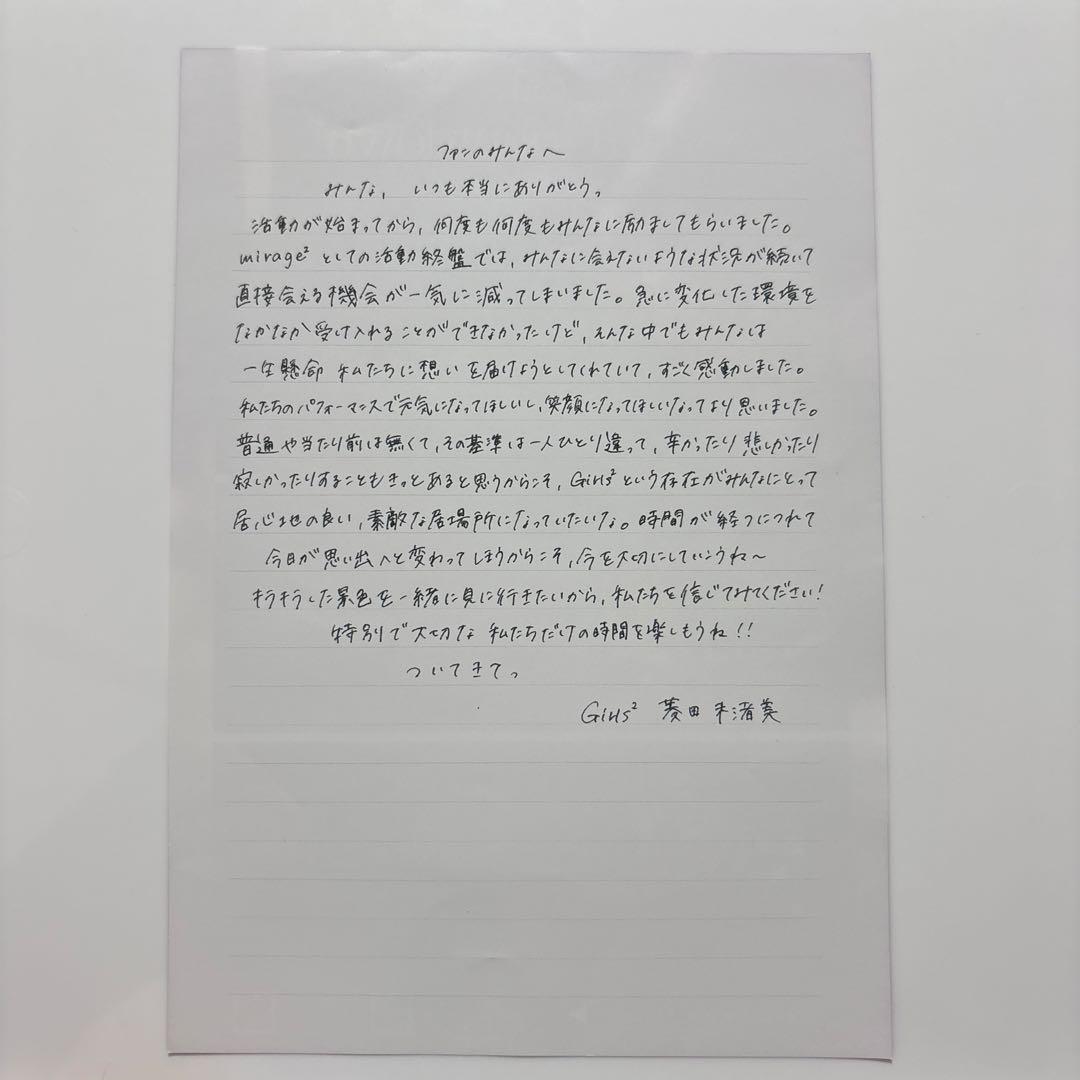 ファンのみんなへ
みんな、いつも本当にありがとう。
活動が始まってから、何度も何度もみんなに励ましてもらいました。
mirage²としての活動終盤では、みんなに会えないような状況が続いて
直接会える機会が一気に減ってしまいました。急に変化した環境を
なかなか受け入れることができなかったけど、そんな中でもみんなは
一生懸命私たちに想いを届けようとしてくれていて、すごく感動しました。
私たちのパフォーマンスで元気になってほしいし、笑顔になってほしいなってより思いました。
普通や当たり前は無くて、その基準は一人ひとり違って、辛かったり悲しかったり
寂しかったりすることもきっとあると思うからこそ、Girls²という存在がみんなにとって
居心地の良い、素敵な居場所になっていたいな。時間が経つにつれて
今日が思い出へと変わってしまうからこそ、今を大切にしていこうね〜
キラキラした景色を一緒に見に行きたいから、私たちを信じてみてください!
特別で大切な私たちだけの時間を楽しもうね!!
ついてきてっ
Girls² 菱田未渚美